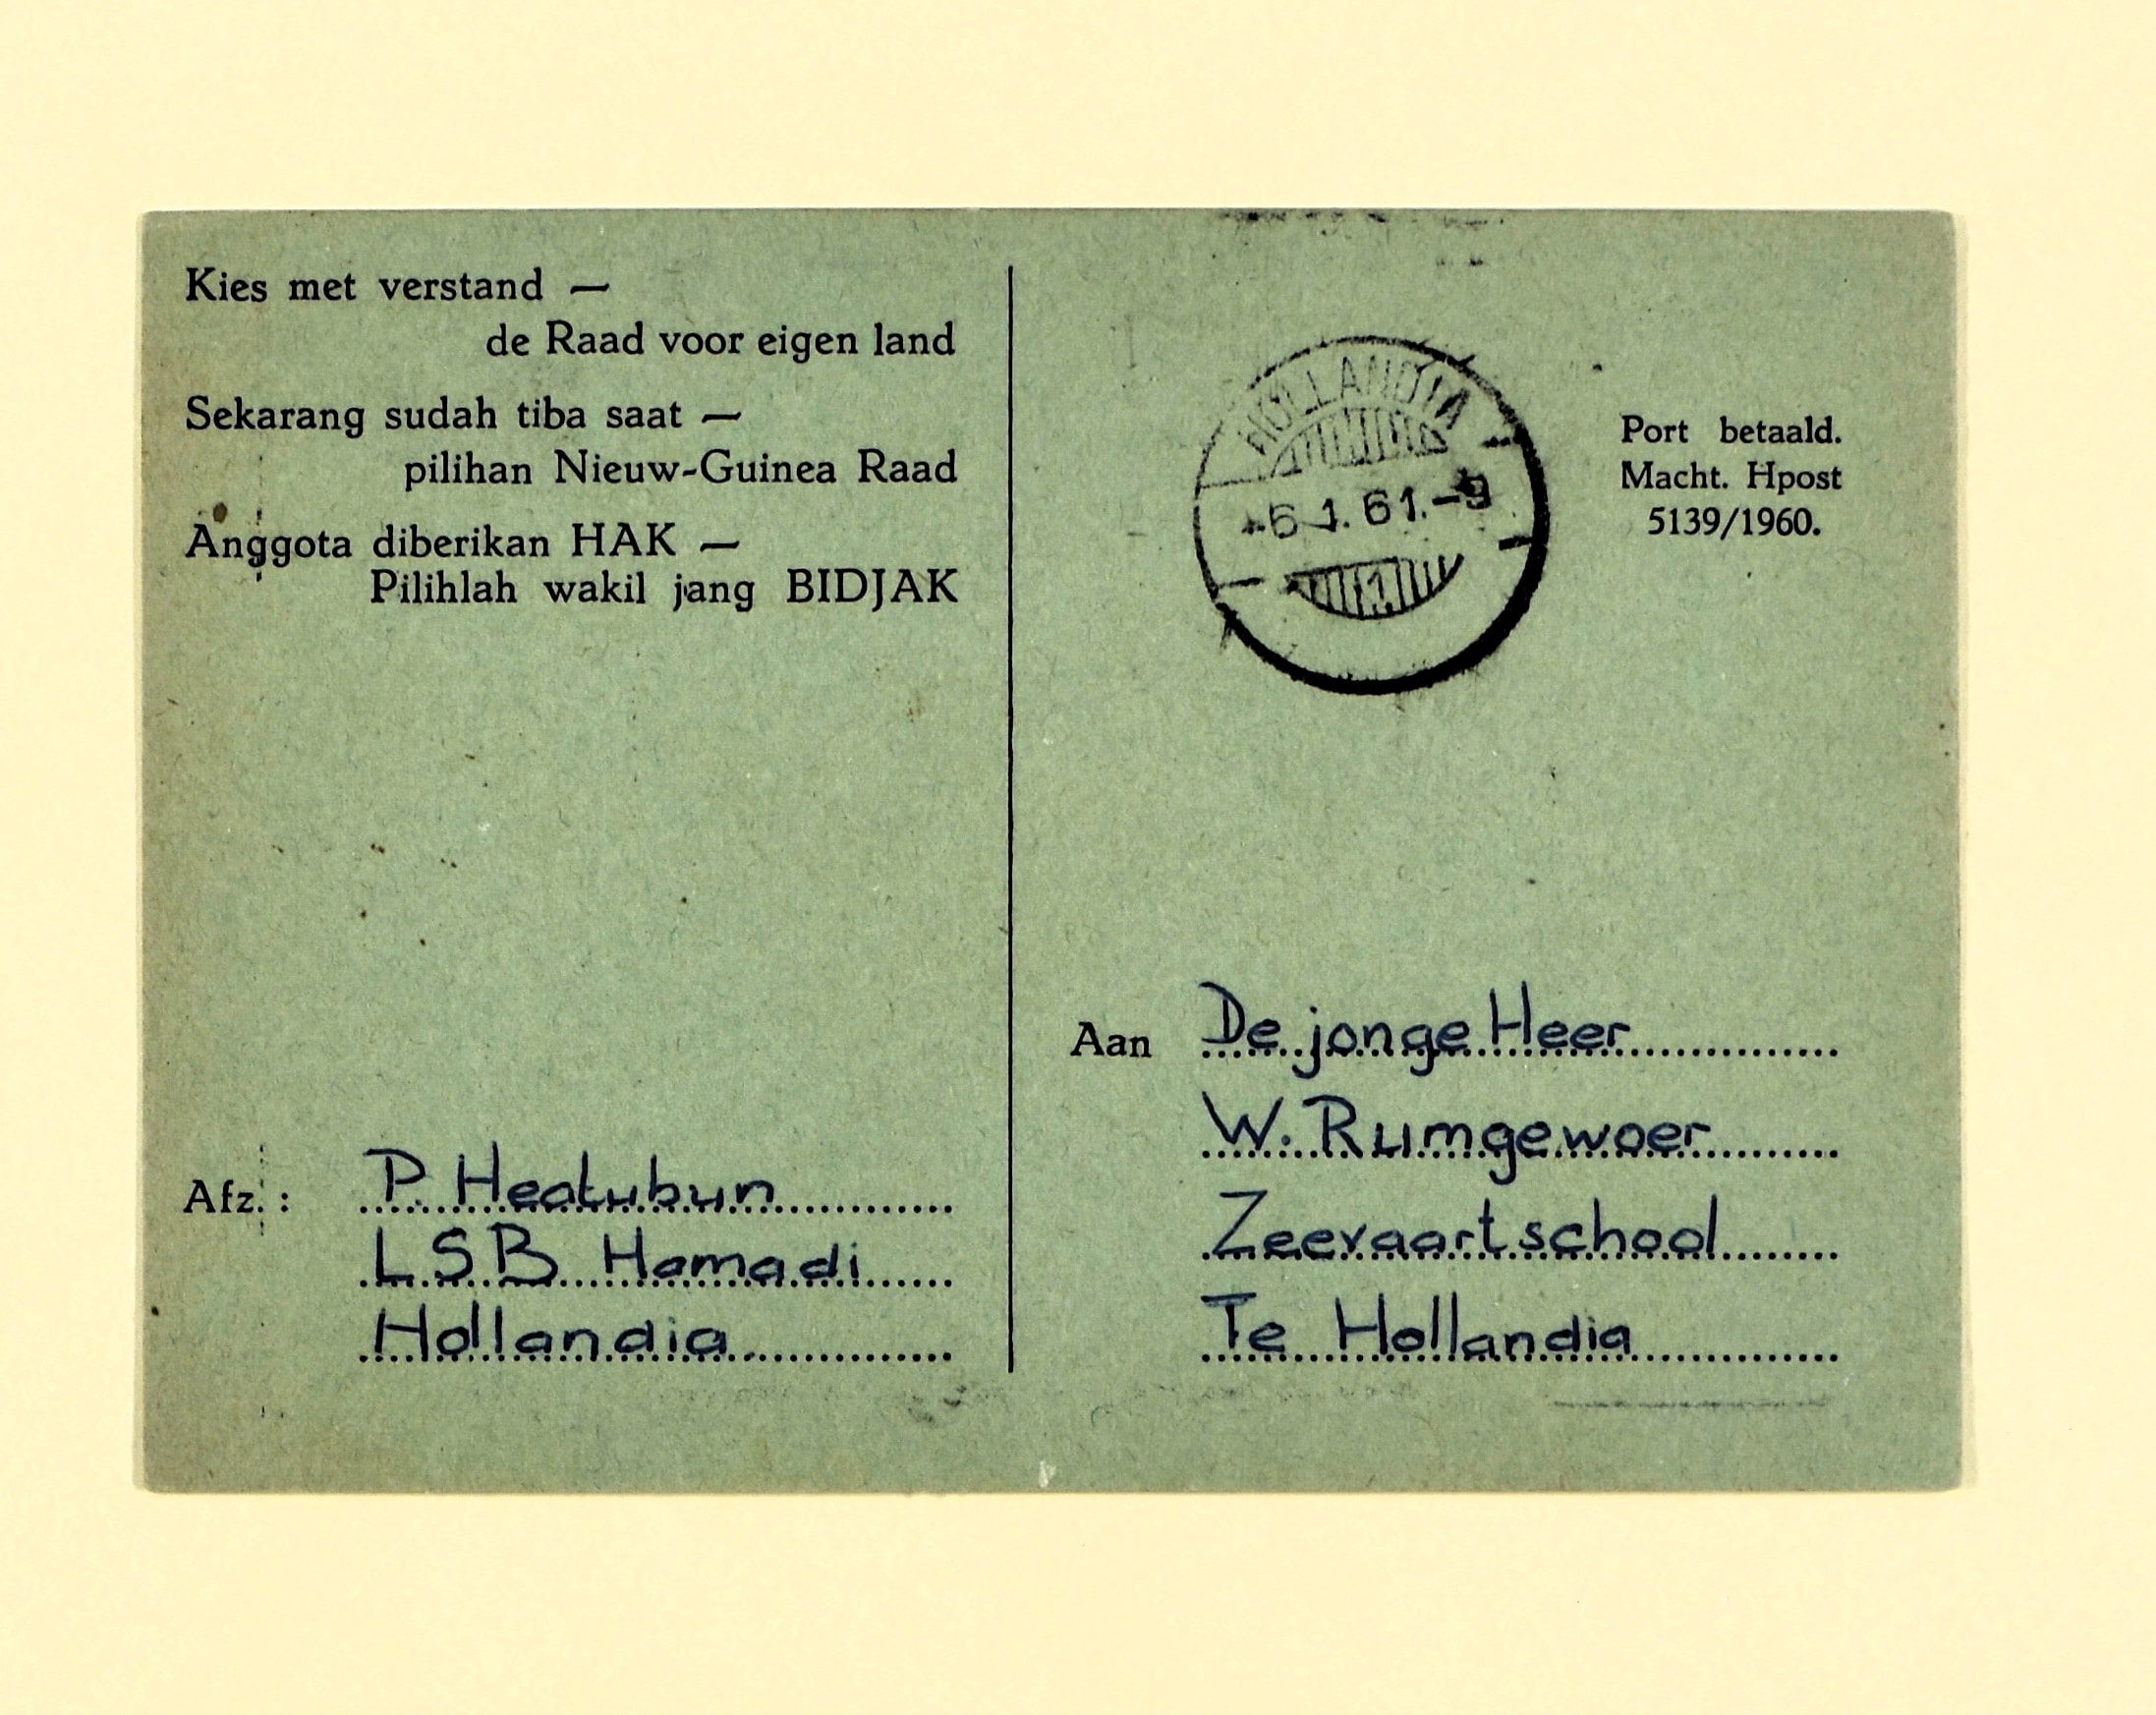 Kies met verstand —
de Raad voor eigen land
Sekarang sudah tiba saat —
pilihan Nieuw-Guinea Raad
Anggota diberikan HAK —
Pilihlah wakil jang BIDJAK
Afz. :
P. Heatubun
L S B Hamadi
Hollandia
HOLLANDIA
-6 1. 61.-9
1
Port betaald.
Macht. Hpost
5139/1960.
Aan De jonge Heer
W. Rumgewoer
Zeevaartschool
Te Hollandia